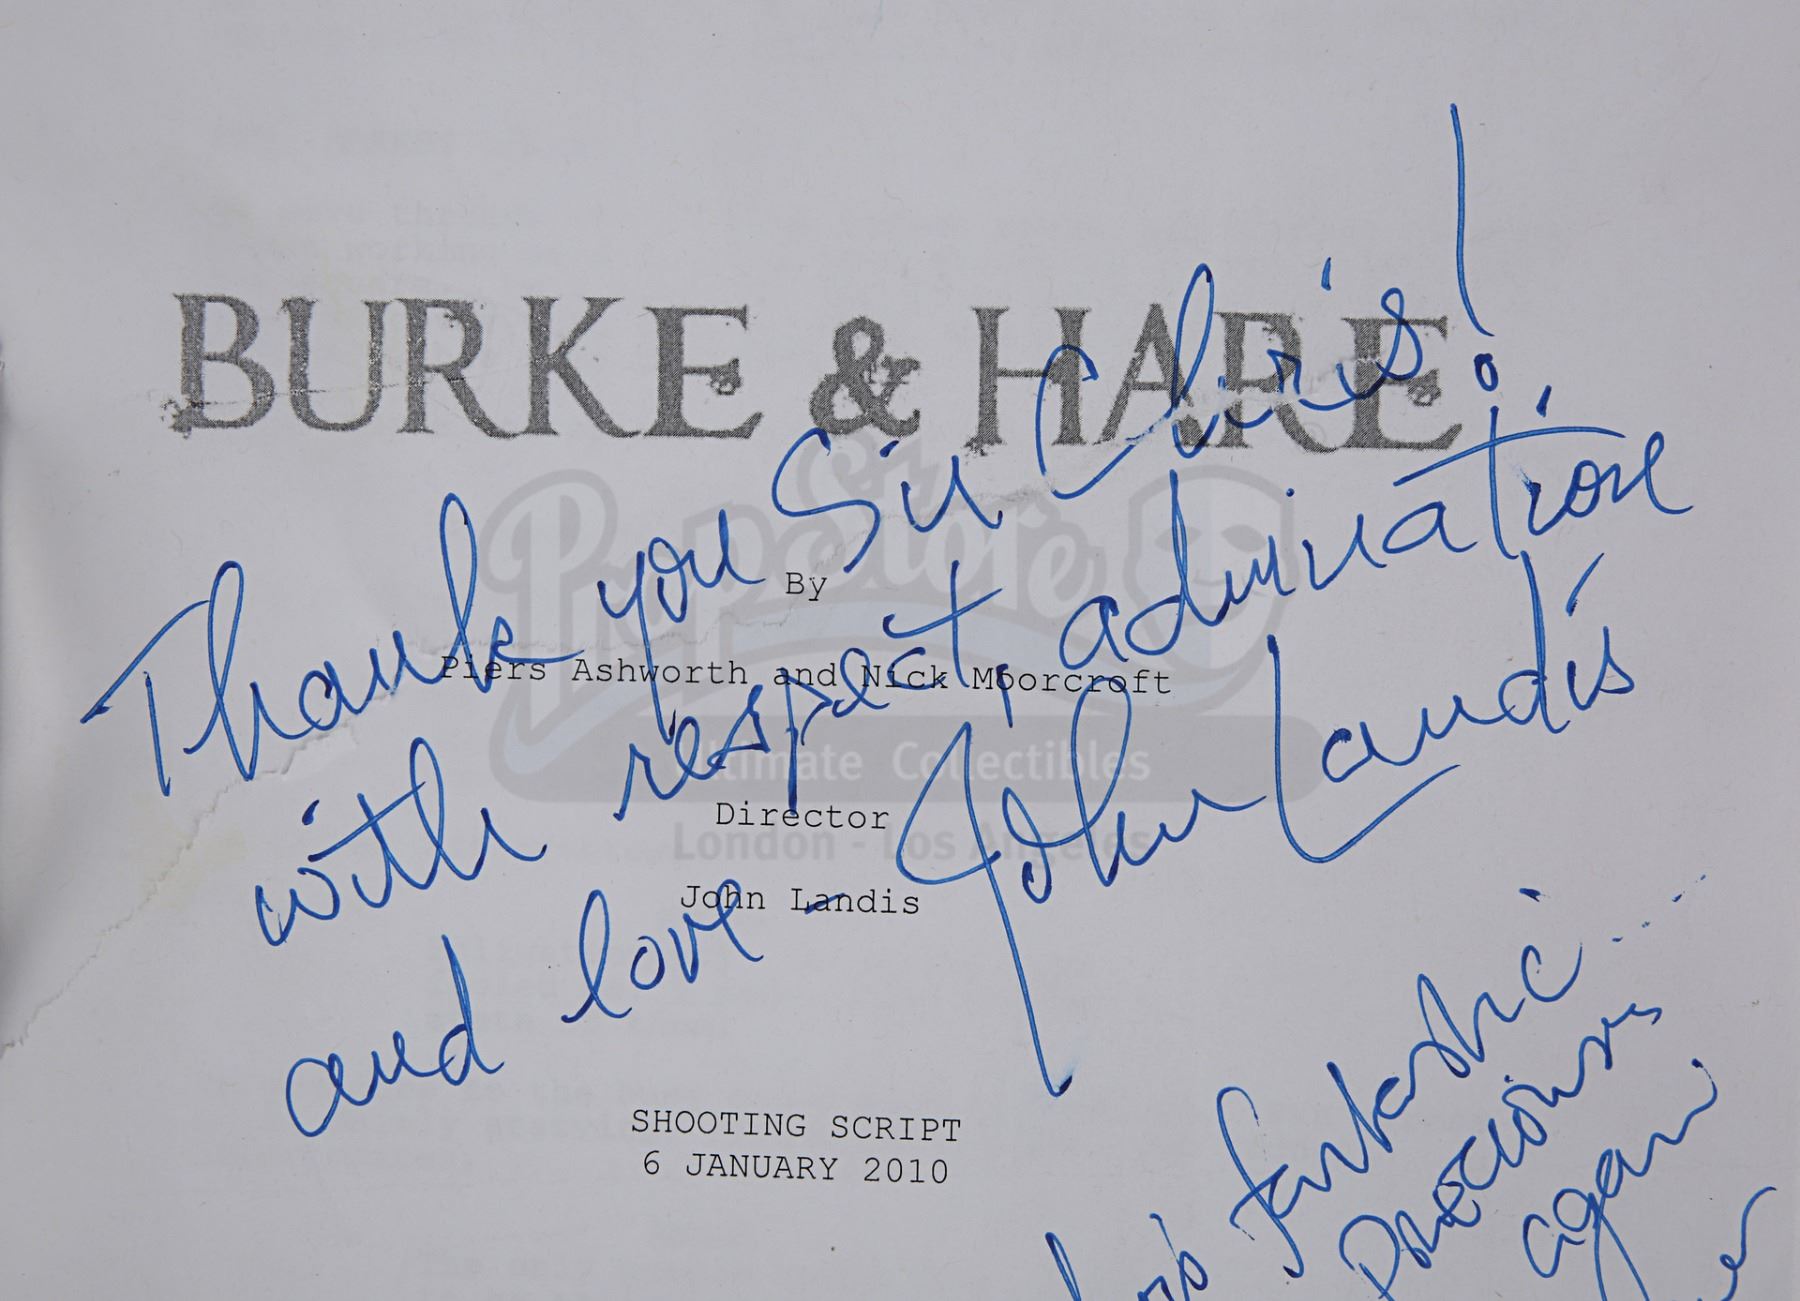 BURKE & HARE
Thank you Sir Chris!
with respect, admiration
and love - John Landis
By
Piers Ashworth and Nick Moorcroft
Director
John Landis
SHOOTING SCRIPT
6 JANUARY 2010
fantastic...
precious
again
Prop Store
Ultimate Collectibles
London - Los Angeles